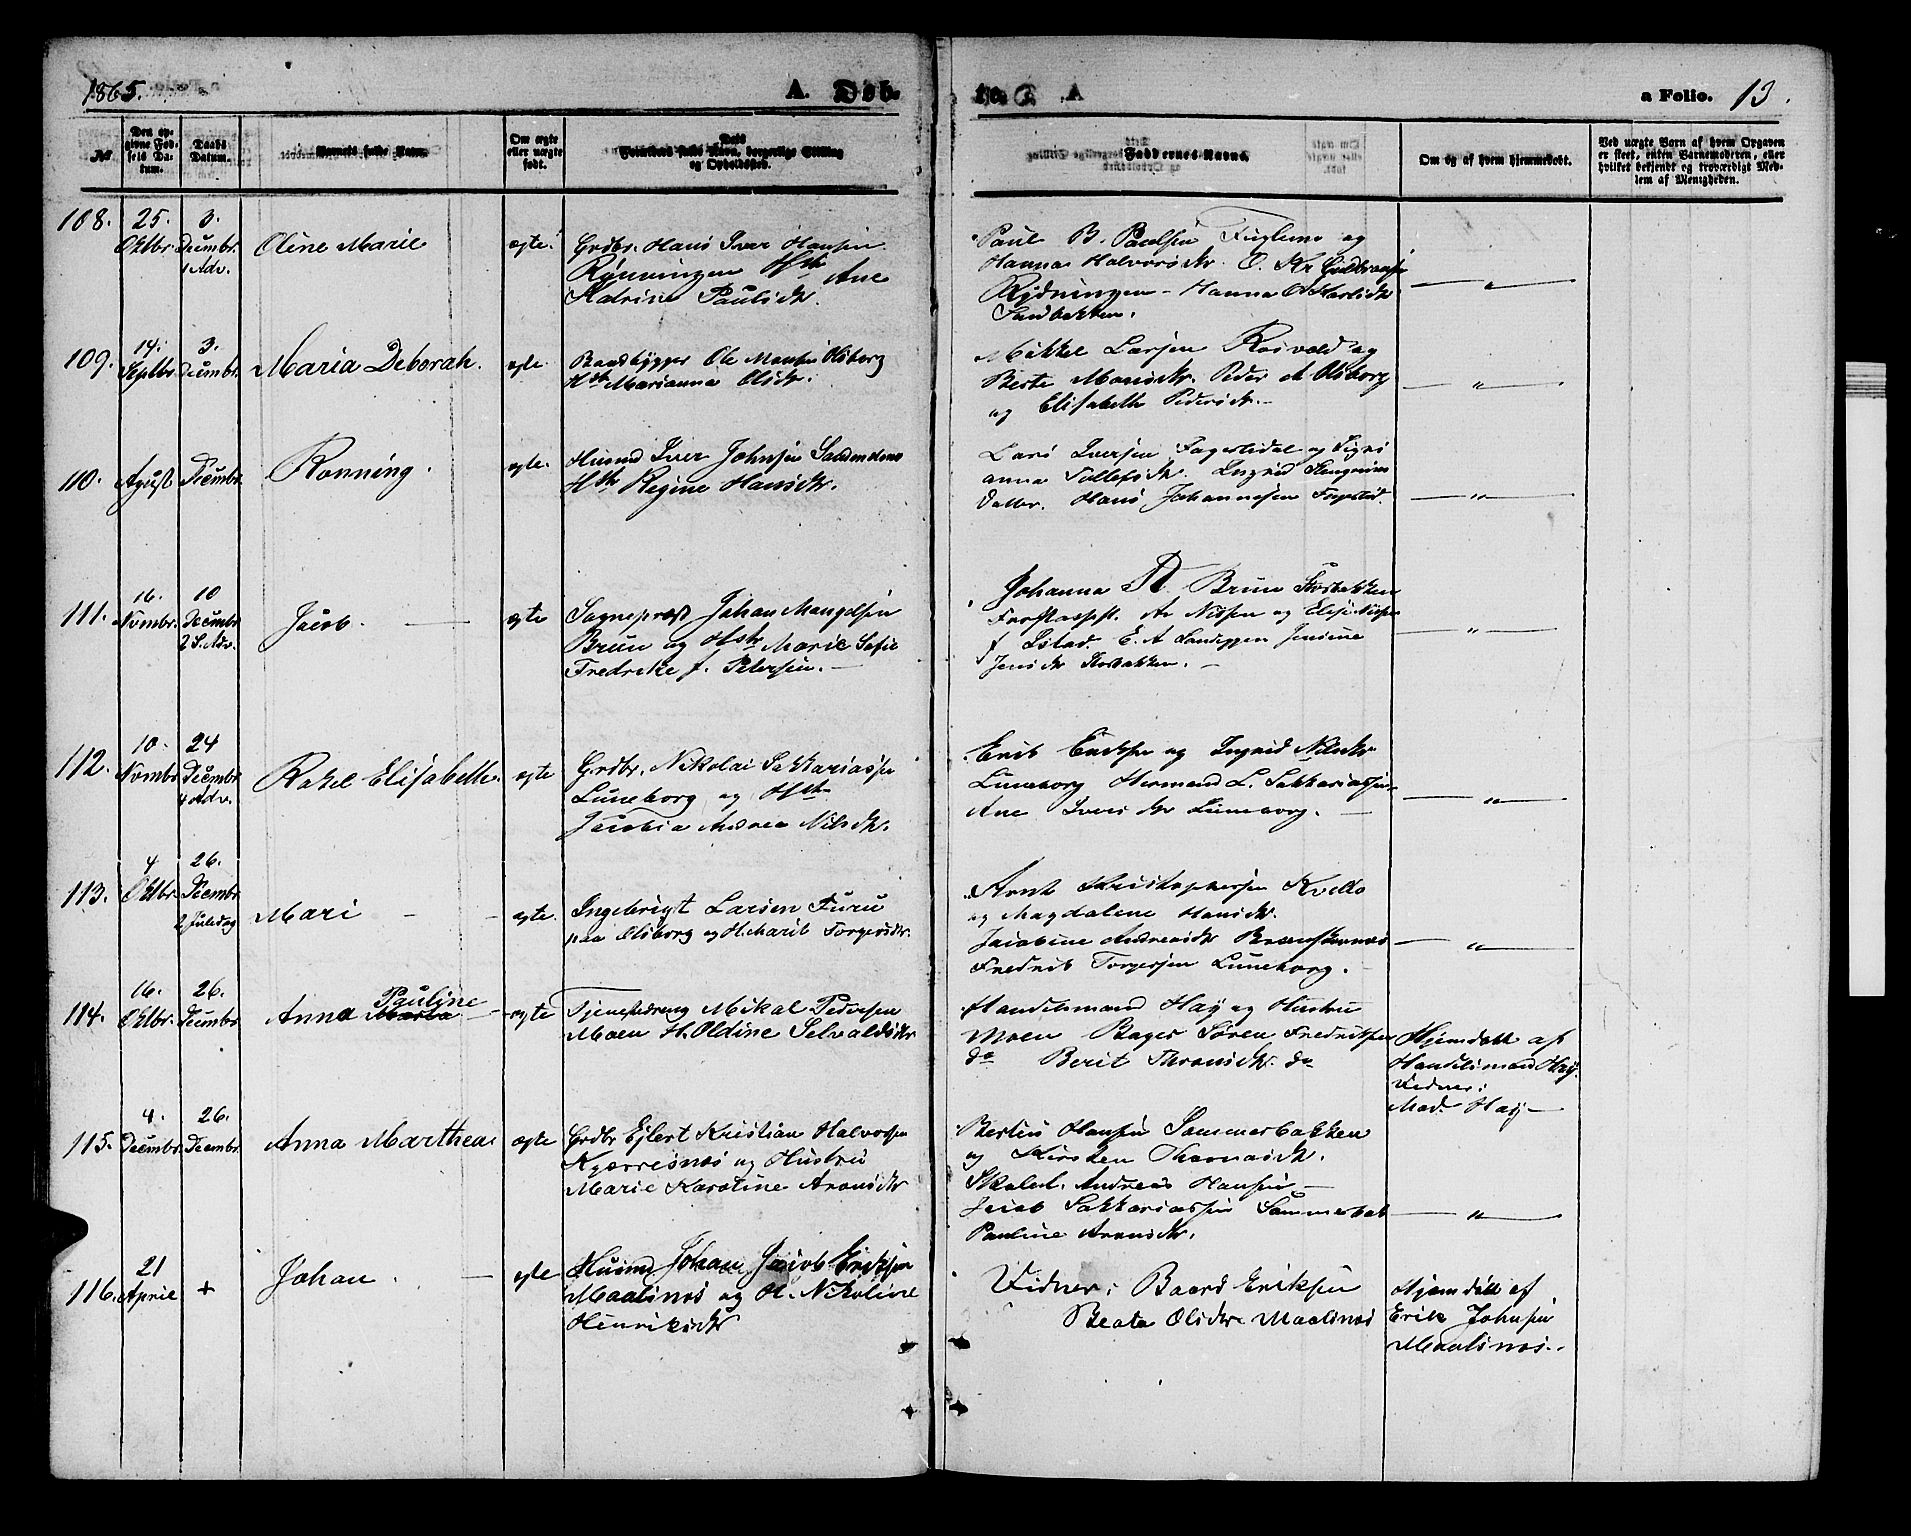 1865. A. Døb. a Folio. 13.
№ Den opgivne Fødsels Datum. Daabs Datum. Barnets fulde Navn. Om ægte eller uægte født. Forældrenes fulde Navn, borgerlige Stilling og Opholdssted. Faddernes Navne. Om og af hvem hjemmedøbt. Ved uægte Barn af hvem Opgaven er skeet, enten Barnemoderen, eller hvilket bekjendt og troværdigt Medlem af Menigheden.
108. 25. Oktbr. 3. Decembr. 1 Adv. Oline Marie ægte
Grdbr. Hans Iver Hansen
Rønningen Hstr Ane
Katrine Paulsdtr.
Paul B. Paulsen Fuglemo og
Hanna Halvorsdtr. O. Kr Guldbransen
Rydningen - Hanna
Sandbakken.
— " —
109. 14. Septbr. 3. Decembr. Maria Deborah. ægte
Baadbygger Ole Monsen Olsborg
Hstr Marianna Olsdtr.
Mikkel Larsen Rosvold og
Berte Monsdtr. Peder A Olsborg
og Elisabeth Pedersdtr. —
— " —
110. Agust Decembr. Ronning. ægte.
Husmd Iver Johnsen
Hstr Regine Hansdtr.
Lars Iversen Fagerlidal og Signi
anna Tollefsdtr. Ingrid
Datter. Hans Johannesen
— " —
111. 16. Nvmbr. 10 Decembr 2 S. Adv. Jacob. — ægte
Sognepræst Johan Mangelsen
Brun og Hstr Marie Sofie
Fredrikke f. Petersen. —
Johanna Brun Storbakken
Forstassist. Ar Nilsen og Elise Nilsen
f Istad. E. A Landeggen Jensine
Jensdtr Storbakken. —
— " —
112. 10. Nvmbr 24 Decembr 4 Adv. Rakel Elisabeth. ægte
Grdbr. Nikolai Sakkariassen
Luneborg og Hstr
Jacobia Andrea Nilsdtr.
Erik Eriksen og Ingrid Nilsdtr
Luneborg Hermand L. Sakkariassen
Ane Iversdtr Luneborg. —
— " —
113. 4 Oktbr. 26. Decembr 2 Juledag Mari — ægte.
Ingebrigt Larsen Furu
paa Olsborg og H. Marit Torgersdtr.
Arnt Kristophersen Kvello
og Magdalene Hansdtr.
Jacobine Andreasdtr
Fredrik Torgersen Luneborg.
— " —
114. 16. Oktbr. 26. Decembr Anna Pauline — ægte
Tjenestedreng Mikal Pedersen
Moen H. Oldine Selvaldsdtr
Handelsmand Høy og Hustru
Moen Bager Søren Fredriksen
do Berit Thronsdtr. do
Hjemdøbt af
Handelsmand Høy
Vidner:
Mad. Høy —
115. 4. Decmbr. 26. Decembr. Anna Marthea. ægte
Grdbr Ejlert Kristian Halvorsen
Kjerresnes og Hustru
Marie Karotine Aronsdtr
Bertin Hansen Sommerbakken
og Kirsten Thomasdtr.
Skolel. Andreas Hansen —
Jacob Sakkariassen Sommerbak
Pauline Aronsdtr.
— " —
116. 21 April + Johan. — ægte
Husmd Johan Jacob Eriksen
Maalsnes og H. Nikoline
Henriksdtr
Vidner: Baard Eriksen
Beata Olsdtr Maalsnes
Hjemdøbt af
Erik Johnsen
Maalsnes.